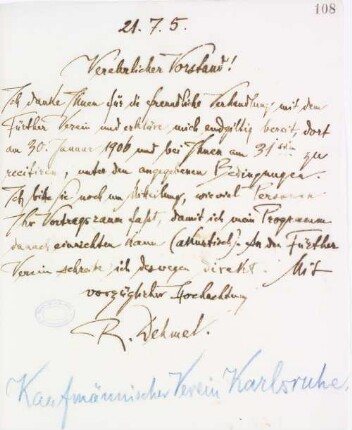 108
21. 7. 5.
Verehrlicher Vorstand!
Ich danke Ihnen für die freundliche Verhandlung mit dem
Fürther Verein und erkläre mich endgiltig bereit, dort
am 30. Januar 1906 und bei Ihnen am 31sten zu
recitiren, unter den angegebenen Bedingungen.
Ich bitte Sie noch um Mitteilung, wieviel Personen
Ihr Vortragsraum faßt, damit ich mein Programm
danach einrichten kann (akustisch). An den Fürther
Verein schreibe ich deswegen direkt. Mit
vorzüglicher Hochachtung
R. Dehmel.
Kaufmännischer Verein Karlsruhe.